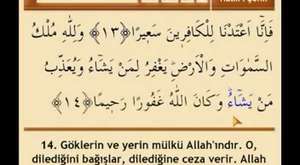 فَاِنَّٓا اَعْتَدْنَا لِلْكَافِر۪ينَ سَع۪يرًا ﴿١٣﴾ وَلِلّٰهِ مُلْكُ
السَّمٰوَاتِ وَالْاَرْضِۜ يَغْفِرُ لِمَنْ يَشَٓاءُ وَيُعَذِّبُ
مَنْ يَشَٓاءُۜ وَكَانَ اللّٰهُ غَفُورًا رَح۪يمًا ﴿١٤﴾
14. Göklerin ve yerin mülkü Allah'ındır. O,
dilediğini bağışlar, dilediğine ceza verir. Allah